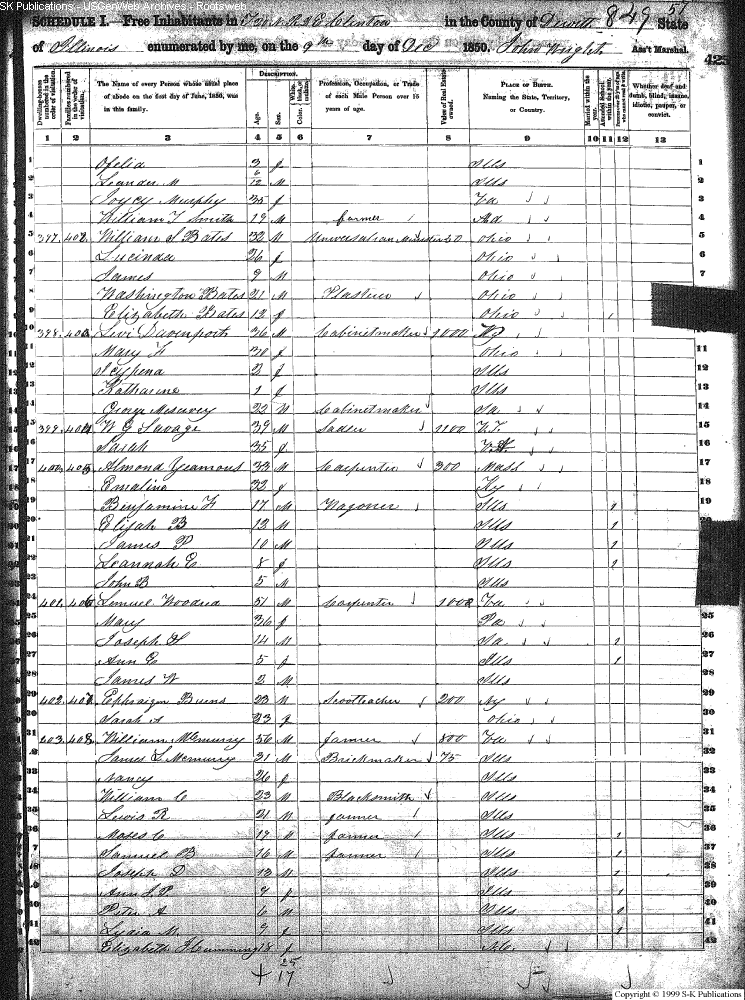 SK Publications - USGenWeb Archives - Rootsweb
SCHEDULE I.—Free Inhabitants in Clinton in the County of Dewitt State
of Illinois enumerated by me, on the 9th day of Dec 1850. John Wright Ass't Marshal.
849 51
423
Dwelling-houses numbered in the order of visitation.
Families numbered in the order of visitation.
The Name of every Person whose usual place of abode on the first day of June, 1850, was in this family.
DESCRIPTION.
Age.
Sex.
Color. White, black, or mulatto.
Profession, Occupation, or Trade of each Male Person over 15 years of age.
Value of Real Estate owned.
PLACE OF BIRTH. Naming the State, Territory, or Country.
Married within the year.
Attended School within the year.
Whether deaf and dumb, blind, insane, idiotic, pauper, or convict.
1 2 3 4 5 6 7 8 9 10 11 12 13
1 Ofelia 3 f Ills 1
2 Leander M 6/12 M Ills 2
3 Joycy Murphy 35 f Va 3
4 William T Smith 19 M farmer 4
5 397 402 William S Bates 32 M Universalian Ohio 5
6 Lucinda 26 f Ohio 6
7 James 9 M Ohio 7
8 Washington Bates 21 M Ohio 8
9 Elizabeth Bates 12 f Ohio 1
10 398 Levi Davenport 36 M Cabinetmaker 1000
11 Mary F 30 f Ohio 11
12 2 f Ills 12
13 Katharine 1 f Ills 13
14 George 22 M Cabinetmaker 14
15 399 404 W G Savage 39 M Sadler 1100 V.T. 15
16 Sarah 35 f 16
17 400 405 Almond Yeamous 33 M Carpenter 300 Mass 17
18 Emaline 32 f Ky 18
19 Benjamine F 17 M Wagoner Ills 1 19
20 Elijah B 12 M Ills 1
21 James P 10 M Ills 1
22 Leannah E 8 f Ills 1
23 John B 5 M Ills
24 401 406 Lemuel 51 M Carpenter 1000 Va
25 Mary 36 f Pa 25
26 Joseph H 14 M 1 26
27 Ann E 5 f Ills 1 27
28 James W 2 M Ills 28
29 402 407 Ephraigm Burns 23 M 200 Ky 29
30 Sarah A 23 f Ohio 30
31 403 408 William Mcmurry 56 M farmer 800 Va 31
32 James L Mcmurry 31 M Brickmaker 75 Ills 32
33 Nancy 26 f Ills 33
34 William C 23 M Blacksmith Ills 34
35 Lewis R 21 M farmer Ills 35
36 Moses C 19 M farmer Ills 1 36
37 Samuel B 16 M farmer Ills 1 37
38 Joseph D 13 M Ills 1 38
39 Ann 9 f Ills 1 39
40 Peter A 6 M Ills 1 40
41 Lydia M 9 f Ills 1 41
42 Elizabeth 18 f Mo 42
25
17
Copyright © 1999 S-K Publications